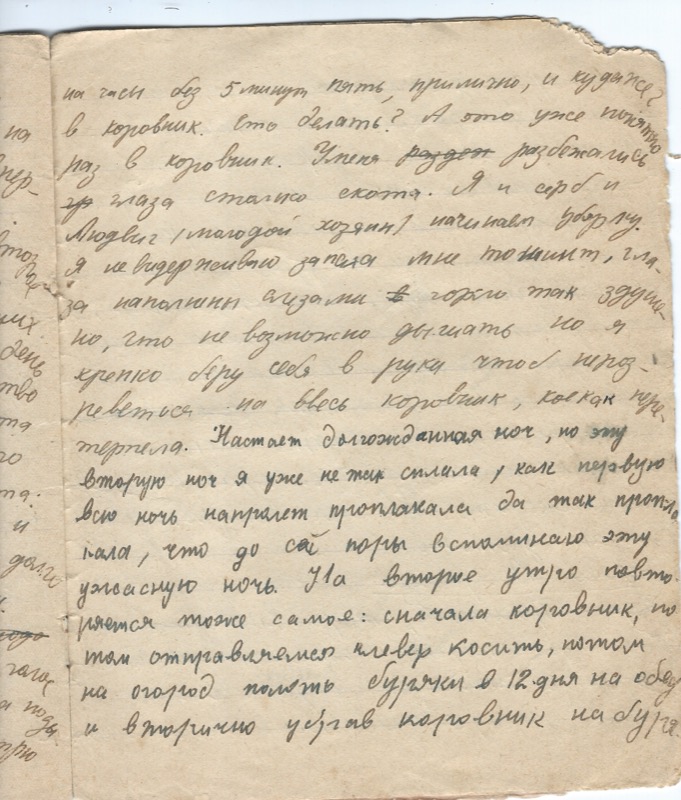 на часы без 5 минут пять, прилично, и куда же?
в коровник. Сто делать? А это уже понятно
раз в коровник. Уменя разбежались
глаза столько скота. Я и серб и
Людвиг (молодой хозяин) начинаем уборку.
Я не видерживаю запаха мне тошнит, гла-
за наполнины слизами горло так здуше-
но, что не возможно дышать но я
крепко беру себя в руки чтоб нероз-
реветься на ввесь коровник, коекак пере-
терпела. Настает долгожданная ноч, но эту
вторую ноч я уже не так спала, как первую
всю ночь напролет проплакала да так пропла
кала, что до сей поры вспоминаю эту
ужасную ночь. На второе утро повто-
ряется тоже самое: сначала коровник, по
том отправляемся клевер косить, потом
на огород полоть буряки в 12 дня на обед
и вторично убрав коровник на буря-
на
пер-
тоз
них
день
тво
та
го
та.
и
долго
голос
а поды